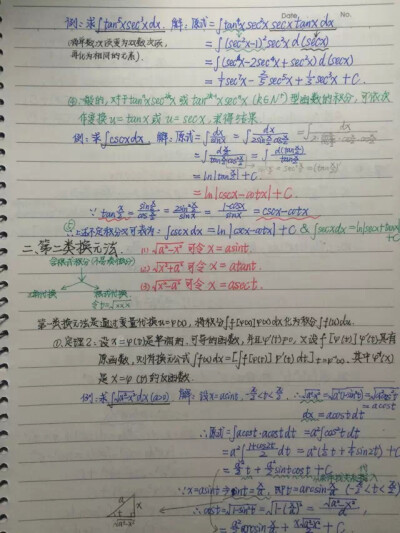 Date. No.
例:求∫tan⁵xsec³xdx. 解:原式=∫tan⁴xsec²x secxtanxdx
=∫(sec²x-1)²sec²x d(secx)
=∫(sec⁶x-2sec⁴x+sec²x)d(secx)
=1/7sec⁷x-2/5sec⁵x+1/3sec³x+C.
作变换u=tanx或u=secx,求得结果
例:求∫cscxdx 解:原式=∫dx/sinx=∫dx/(2sin x/2 cos x/2)
=∫d(x/2)/(tan x/2 cos² x/2)=∫d(tan x/2)/(tan x/2)
=ln|tan x/2|+C
=ln|cscx-cotx|+C.
∵tan x/2=(sin x/2)/(cos x/2)=(2sin² x/2)/sinx=(1-cosx)/sinx=cscx-cotx
∴上述不定积分又可表为:∫cscxdx=ln|cscx-cotx|+C & ∫secxdx=ln|secx+tanx|+C
二、第二类换元法
(1) √(a²-x²) 可令x=asint.
(2) √(x²+a²) 可令x=atant.
(3) √(x²-a²) 可令x=asect.
第一类换元法是通过变量代换u=φ(x),将积分∫f[φ(x)]φ'(x)dx化为积分∫f(u)du.
①定理2:设x=ψ(t)是单调的、可导的函数,并且ψ'(t)≠0,又设f[ψ(t)]ψ'(t)具有
原函数,则有换元公式∫f(x)dx=[∫f[ψ(t)]ψ'(t)dt]t=ψ⁻¹(x),其中ψ⁻¹(x)
是x=ψ(t)的反函数.
例:求∫√(a²-x²)dx(a>0). 解:设x=asint,-π/2<t<π/2 ∴√(a²-x²)=√(a²(1-sin²t))=√(a²cos²t)
=acost
dx=acostdt
∴原式=∫acost·acostdt=a²∫cos²tdt
=a²∫(1+cos2t)/2 dt=a²(1/2t+1/4sin2t)+C
=a²/2 t+a²/2 sintcost+C
∵x=asint→sint=x/a,即t=arcsin x/a (-π/2<t<π/2)
∴cost=√(1-sin²t)=√(1-(x/a)²)=√(a²-x²)/a,
=a²/2 arcsin x/a+x√(a²-x²)/2+C
a x t √(a²-x²)